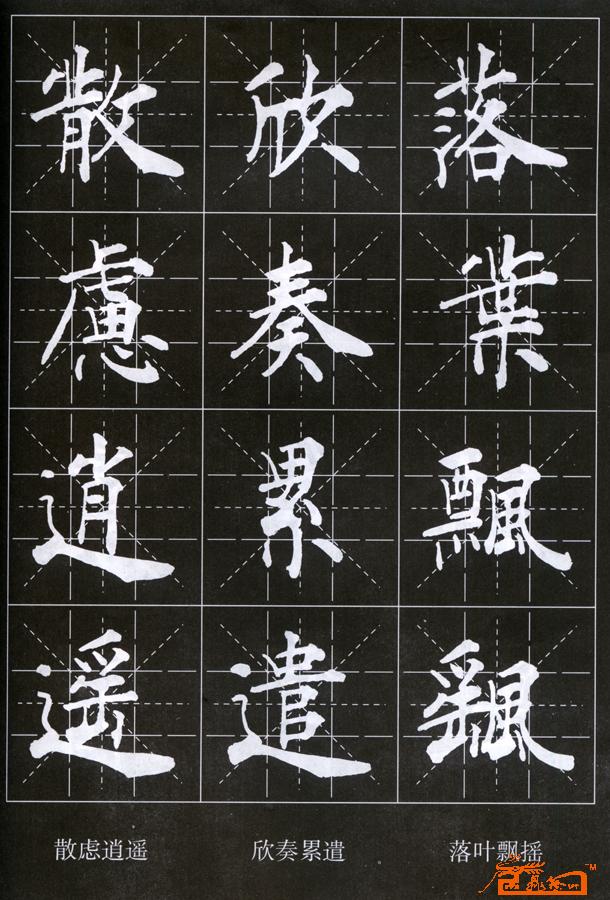 落葉飄颻
欣奏累遣
散慮逍遥
落叶飘摇
欣奏累遣
散虑逍遥